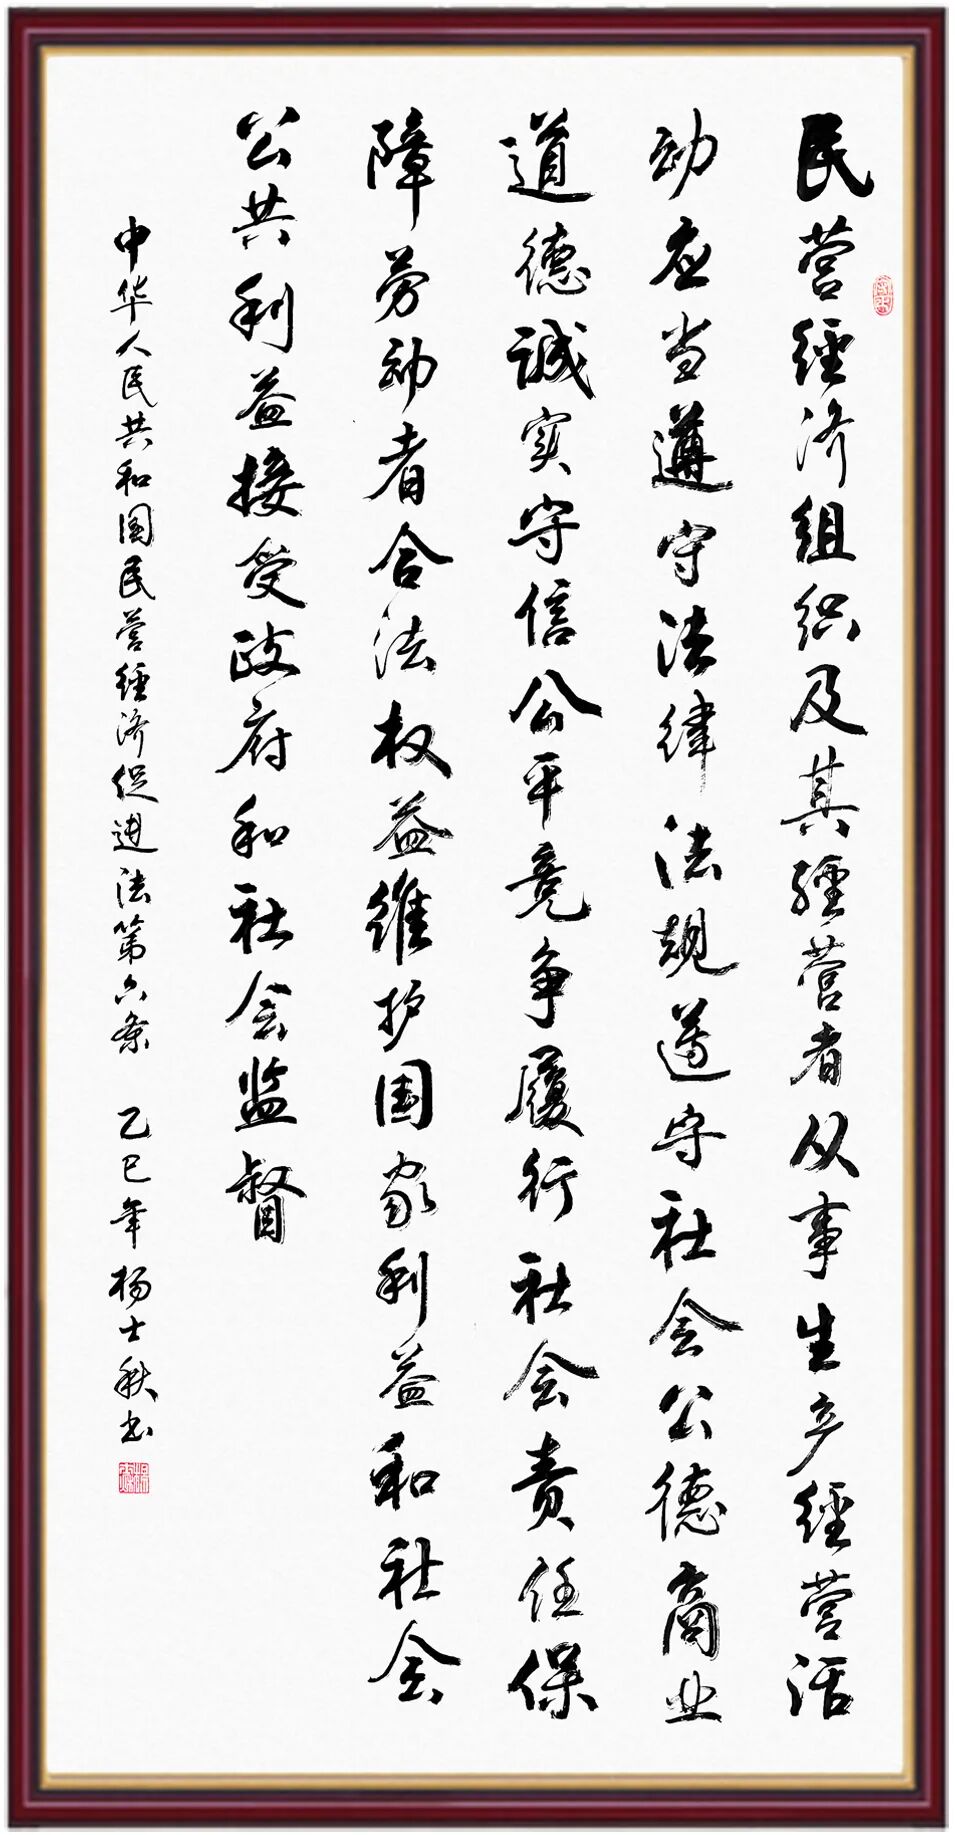 民营经济组织及其经营者从事生产经营活
动应当遵守法律法规遵守社会公德商业
道德诚实守信公平竞争履行社会责任保
障劳动者合法权益维护国家利益和社会
公共利益接受政府和社会监督
中华人民共和国民营经济促进法第六条 乙巳年 杨士秋书